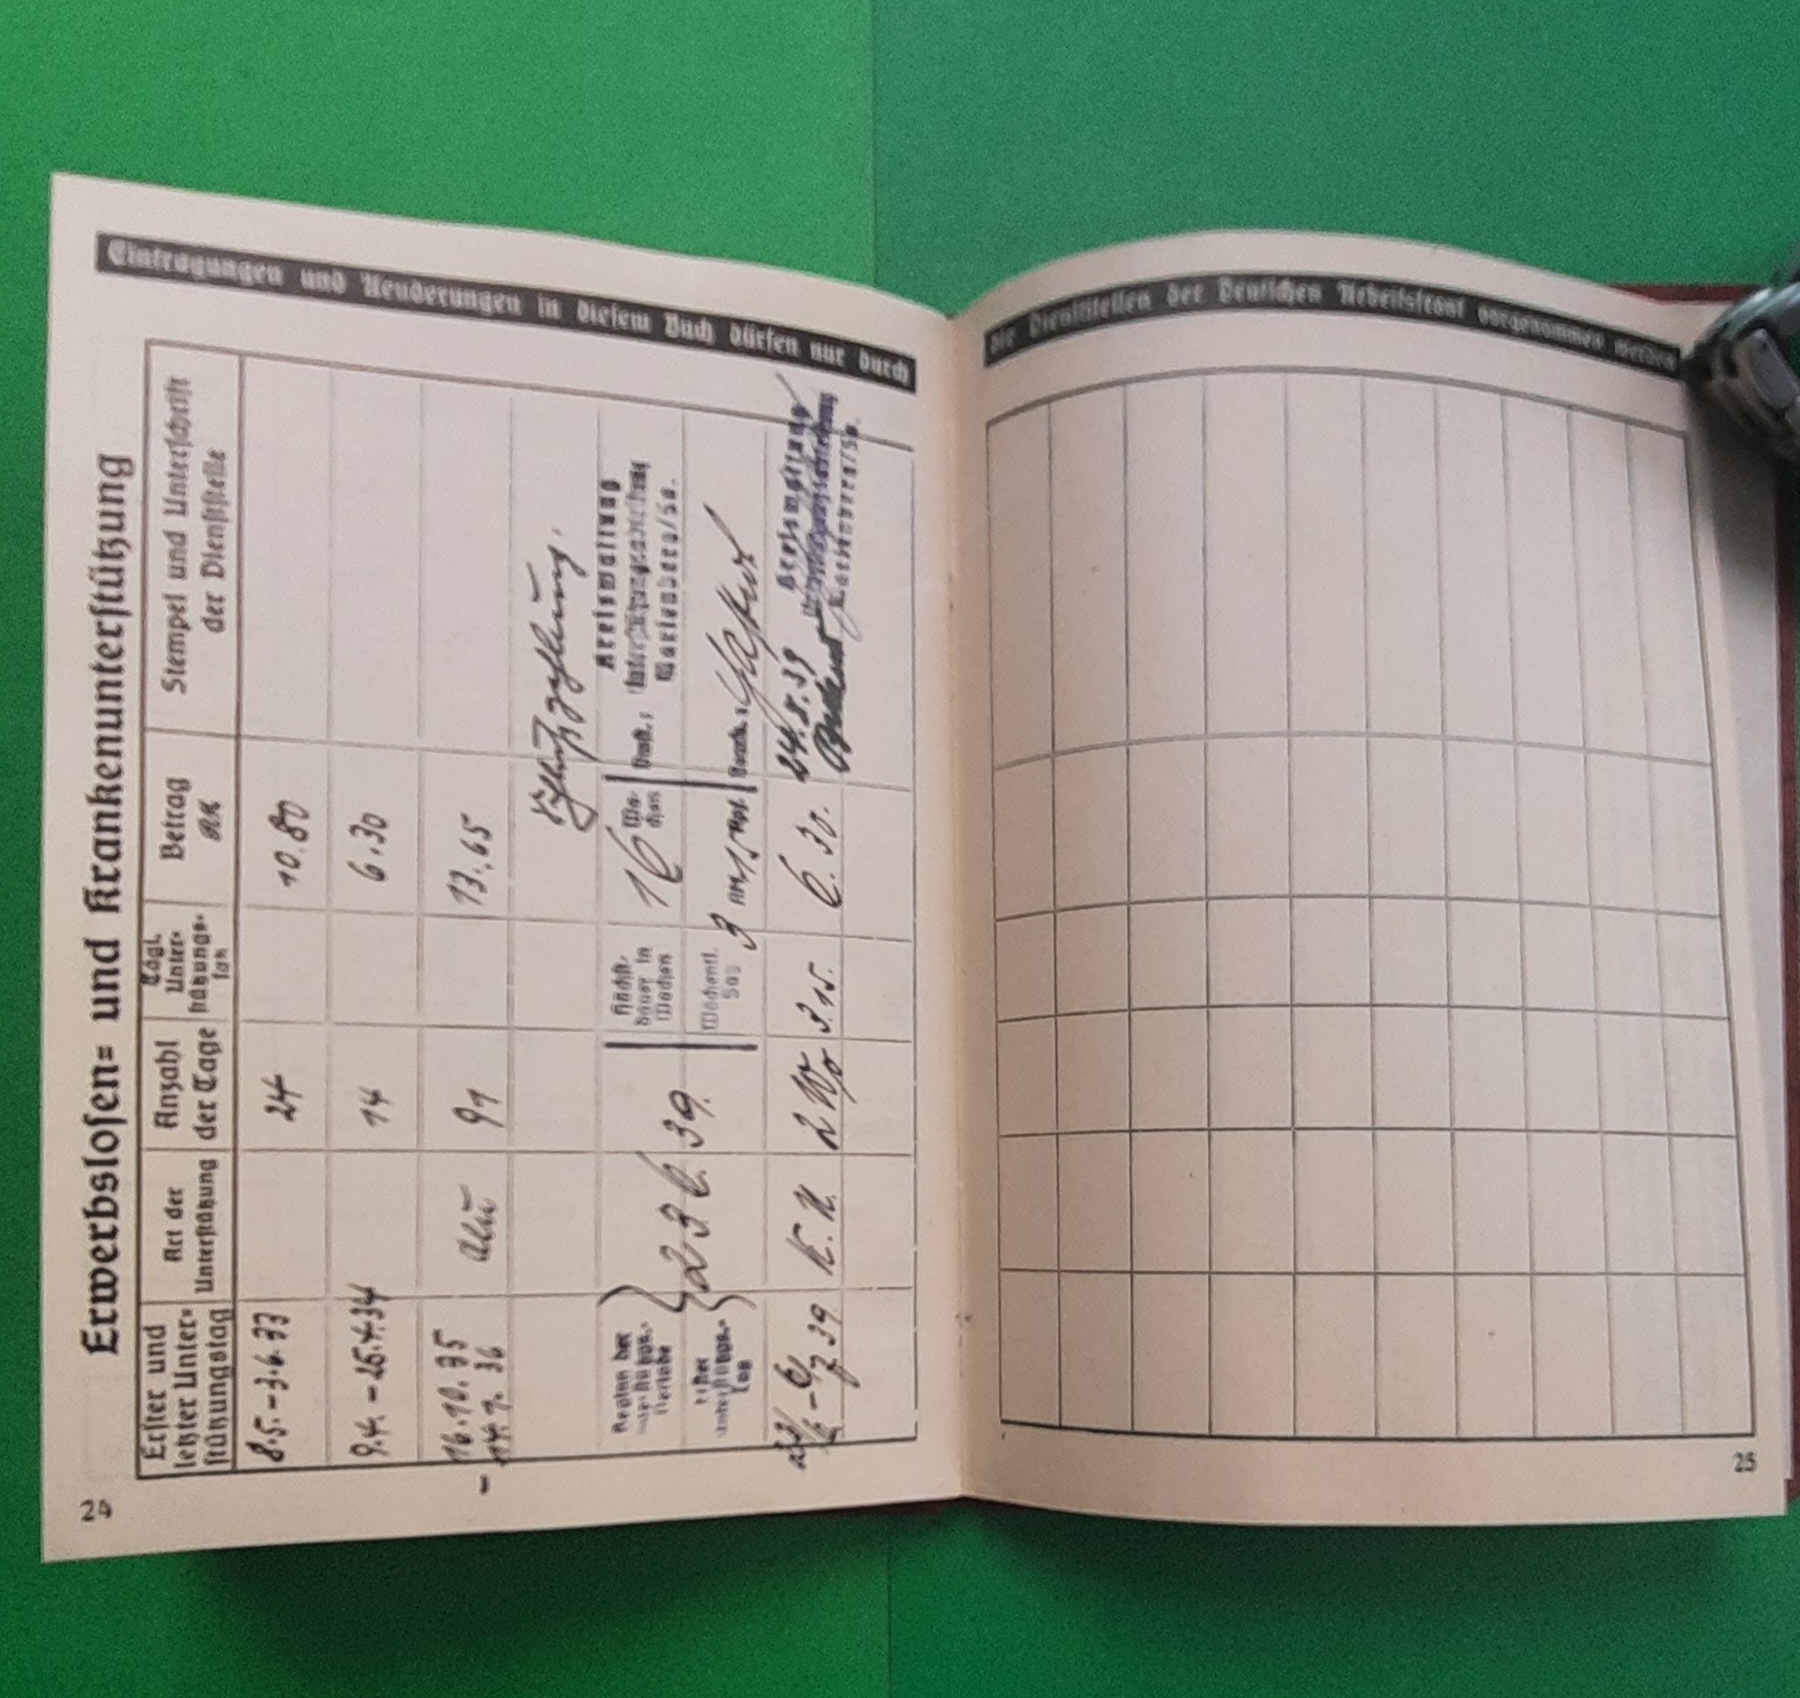 Eintragungen und Aenderungen in diesem Buch dürfen nur durch
die Dienststellen der Deutschen Arbeitsfront vorgenommen werden
Erwerbslosen- und Krankenunterstützung
Erster und letzter Unter-
stützungstag
Art der
Unterstützung
Anzahl
der Tage
Tägl.
Unter-
stützungs-
satz
Betrag
RM
Stempel und Unterschrift
der Dienststelle
8.5.-3.6.33 24 10.80
9.4.-25.4.34 14 6.30
16.10.35
- 14.7.36 91 13.65
Schlußzahlung.
Beginn der
Unterstützgs.-
Periode
23 6. 39.
Höchst-
dauer in
Wochen
16 Wo-
chen
Kreiswaltung
Unterstützungsabteilung
Marienberg/Sa.
erster
Unterstützgs.-
Tag
Wöchentl.
Satz
3
6/7 39 K. U. 2 Wo 3.15. 6. 30. 24.8.39
24
25